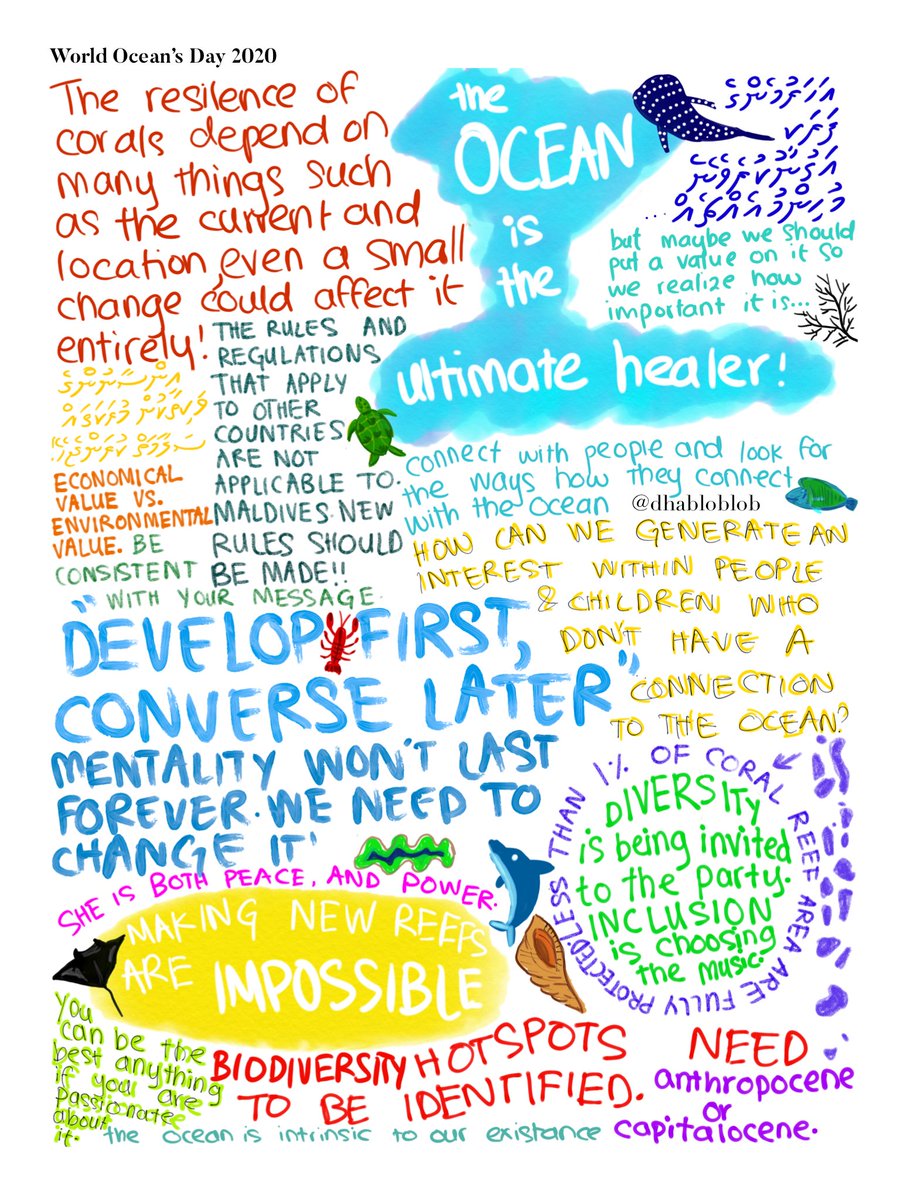 World Ocean's Day 2020
The resilence of
corals depend on
many things such
as the current and
location, even a small
change could affect it
entirely!
the
OCEAN
is
the
ultimate healer!
އަހަރުމެންގެ
but maybe we should
put a value on it so
we realize how
important it is...
THE RULES AND
REGULATIONS
THAT APPLY
TO OTHER
COUNTRIES
ARE NOT
APPLICABLE TO
MALDIVES. NEW
RULES SHOULD
BE MADE!!
ECONOMICAL
VALUE VS.
ENVIRONMENTAL
VALUE. BE
CONSISTENT
WITH YOUR MESSAGE.
connect with people and look for
the ways how they connect
with the ocean
@dhabloblob
HOW CAN WE GENERATE AN
INTEREST WITHIN PEOPLE
& CHILDREN WHO
DON'T HAVE A
CONNECTION
TO THE OCEAN?
"DEVELOP FIRST,
CONVERSE LATER"
MENTALITY WON'T LAST
FOREVER. WE NEED TO
CHANGE IT!
LESS THAN 1% OF CORAL REEF AREA ARE FULLY PROTECTED
DIVERSITY
is being invited
to the party.
INCLUSION
is choosing
the music.
SHE IS BOTH PEACE, AND POWER.
MAKING NEW REEFS
ARE IMPOSSIBLE
you
can be the
best anything
if you are
passionate
about
it.
BIODIVERSITY HOTSPOTS NEED
TO BE IDENTIFIED.
anthropocene
or
capitalocene.
the ocean is intrinsic to our existance